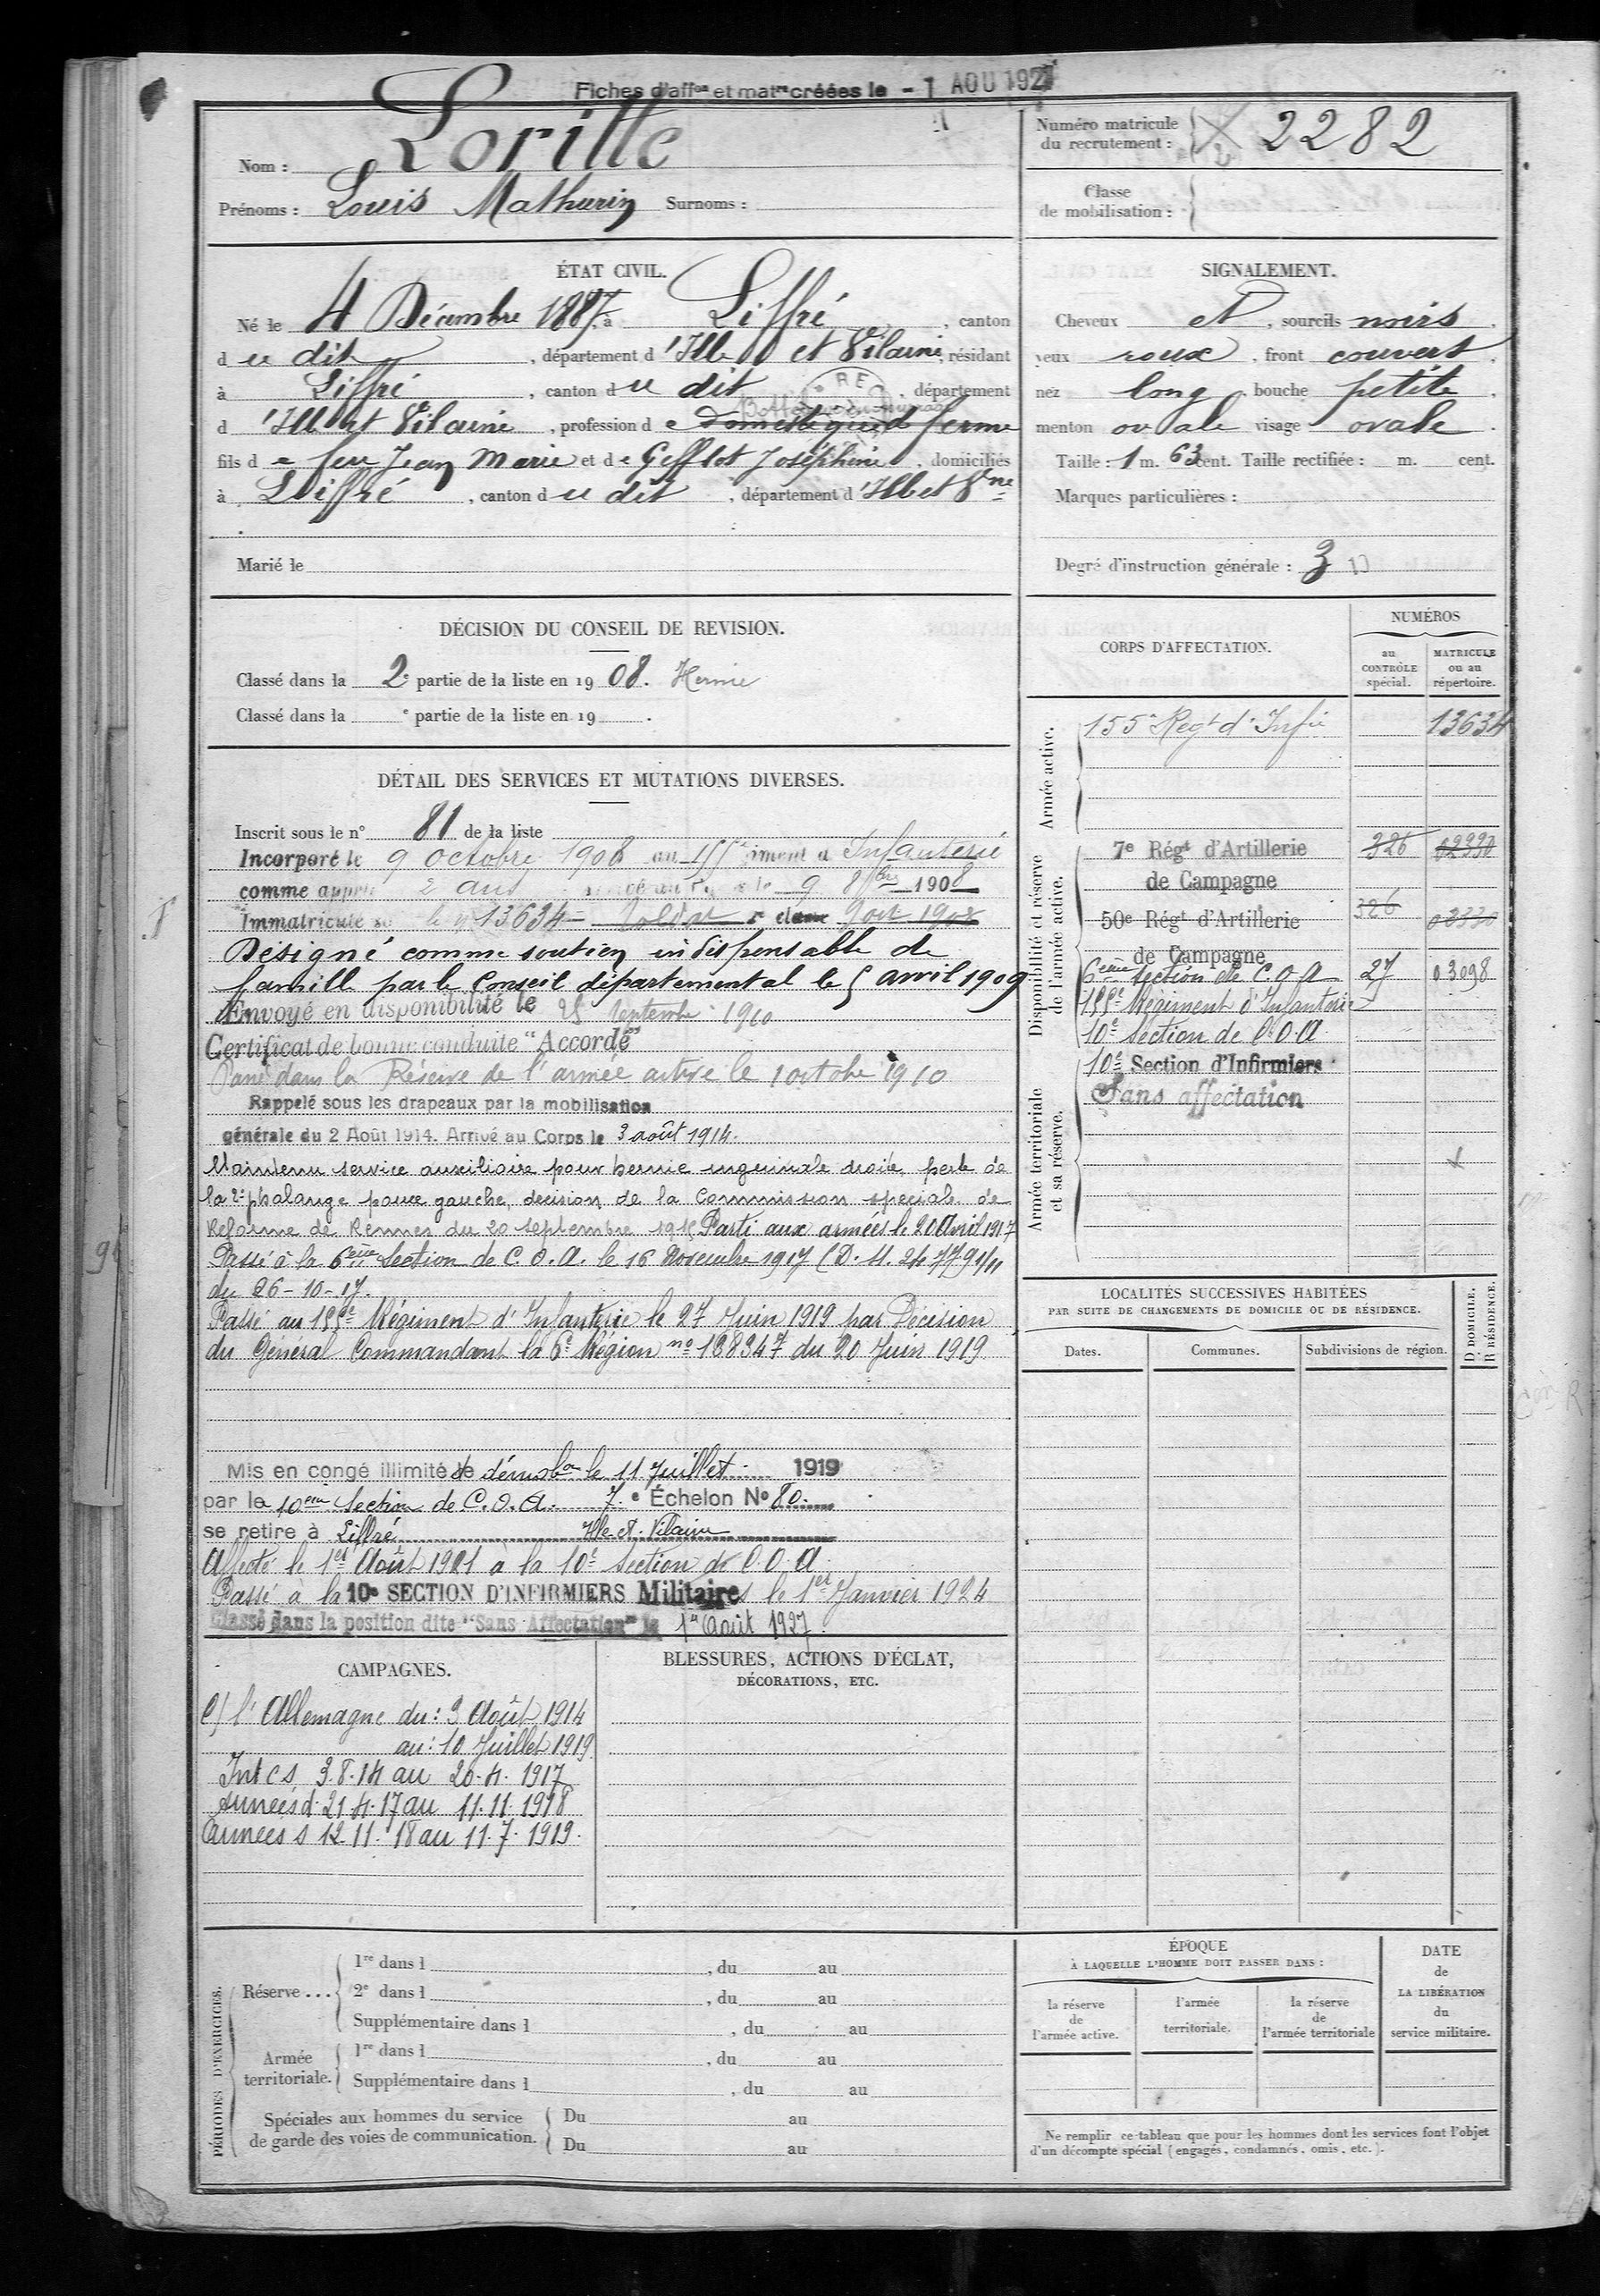 Fiches d'aff.on et mat.re créées le - 1 AOU 1927
Nom : Loritte
Prénoms : Louis Mathurin Surnoms :
Numéro matricule du recrutement : 2282
Classe de mobilisation :
ÉTAT CIVIL.
Né le 4 Décembre 1887, à Liffré, canton
d u dit, département d 'Ille et Vilaine, résidant
à Liffré, canton d u dit, département
d 'Ille et Vilaine, profession d e Domestique de ferme
fils d e feu Jean Marie et d e Gefflot Joséphine, domiciliés
à Liffré, canton d u dit, département d 'Ille et Vne
Marié le
SIGNALEMENT.
Cheveux et, sourcils noirs,
yeux roux, front couvert,
nez long, bouche petite,
menton ovale visage ovale.
Taille : 1 m. 63 cent. Taille rectifiée : m. cent.
Marques particulières :
Degré d'instruction générale : 3
DÉCISION DU CONSEIL DE REVISION.
Classé dans la 2e partie de la liste en 1908. Hernie
Classé dans la e partie de la liste en 19 .
DÉTAIL DES SERVICES ET MUTATIONS DIVERSES.
Inscrit sous le n° 81 de la liste
Incorporé le 9 octobre 1908 au 155 iment d Infanterie
comme appelé 2 ans le 9 8bre 1908
Immatriculé so le n° 13634 - Soldat 2 classe 9 oct 1908
Désigné comme soutien indispensable de
famille par le Conseil départemental le 5 avril 1909
Envoyé en disponibilité le 25 Septembre 1910
Certificat de bonne conduite "Accordé"
Passé dans la Réserve de l'armée active le 1 octobre 1910
Rappelé sous les drapeaux par la mobilisation
générale du 2 Août 1914. Arrivé au Corps le 3 août 1914.
Maintenu service auxiliaire pour hernie inguinale droite, perte de
la 2e phalange pouce gauche, décision de la Commission spéciale de
Réforme de Rennes du 20 septembre 1915 Parti aux armées le 20 Avril 1917
Passé à la 6ème Section de C. O. A. le 16 Novembre 1917 (D. M. 24779 1/11
du 26-10-17.
Passé au 155e Régiment d'Infanterie le 27 Juin 1919 par Décision
du Général Commandant la 6e Région no 138347 du 20 Juin 1919
Mis en congé illimité de démobon le 11 Juillet 1919
par la 10ème Section de C. O. A. 7.e Échelon No 80.
se retire à Liffré Ille et Vilaine
Affecté le 1er Août 1921 à la 10e Section de C. O. A.
Passé à la 10e SECTION D'INFIRMIERS Militaires le 1er Janvier 1924
Classé dans la position dite "Sans Affectation" le 1er Août 1927.
CORPS D'AFFECTATION.
NUMÉROS
au CONTRÔLE spécial.
MATRICULE ou au répertoire.
Armée active.
155e Regt d'Infie 13634
Disponibilité et réserve de l'armée active.
7e Régt d'Artillerie 326 02330
de Campagne
50e Régt d'Artillerie 326 03330
de Campagne
6ème Section de C. O. A 27 03098
155e Régiment d'Infanterie
10e Section de C. O. A
Armée territoriale et sa réserve.
10e Section d'Infirmiers
Sans affectation
LOCALITÉS SUCCESSIVES HABITÉES
PAR SUITE DE CHANGEMENTS DE DOMICILE OU DE RÉSIDENCE.
Dates. Communes. Subdivisions de région. D DOMICILE. R RÉSIDENCE.
CAMPAGNES.
C/ l'Allemagne du : 3 Août 1914
au : 10 Juillet 1919
Int CS 3.8.14 au 20.4.1917
Armées d. 21.4.17 au 11.11.1918
Armées s 12.11.18 au 11.7.1919.
BLESSURES, ACTIONS D'ÉCLAT,
DÉCORATIONS, ETC.
PÉRIODES D'EXERCICES.
Réserve ... 1re dans l , du au
2e dans l , du au
Supplémentaire dans l , du au
Armée territoriale. 1re dans l , du au
Supplémentaire dans l , du au
Spéciales aux hommes du service
de garde des voies de communication.
Du au
Du au
ÉPOQUE
À LAQUELLE L'HOMME DOIT PASSER DANS :
la réserve de l'armée active.
l'armée territoriale.
la réserve de l'armée territoriale
DATE de LA LIBÉRATION du service militaire.
Ne remplir ce tableau que pour les hommes dont les services font l'objet
d'un décompte spécial (engagés, condamnés, omis, etc.).